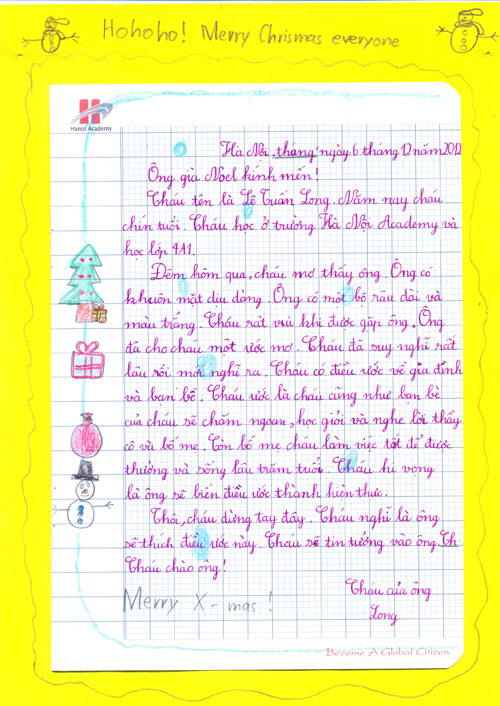 Hohoho! Merry Chrismas everyone
H
Hanoi Academy
Hà Nội, thang ngày 6 tháng 12 năm 2012
Ông già Noel kính mến!
Cháu tên là Lê Tuấn Long. Năm nay cháu
chín tuổi. Cháu học ở trường Hà Nội Academy và
học lớp 4A1.
Đêm hôm qua, cháu mơ thấy ông. Ông có
khuôn mặt dịu dàng. Ông có một bộ râu dài và
màu trắng. Cháu rất vui khi được gặp ông. Ông
đã cho cháu một ước mơ. Cháu đã suy nghĩ rất
lâu rồi mới nghĩ ra. Cháu có điều ước về gia đình
và bạn bè. Cháu ước là cháu cũng như bạn bè
của cháu sẽ chăm ngoan, học giỏi và nghe lời thầy
cô và bố mẹ. Còn bố mẹ cháu làm việc tốt để được
thưởng và sống lâu trăm tuổi. Cháu hi vọng
là ông sẽ biến điều ước thành hiện thực.
Thôi, cháu dừng tay đây. Cháu nghĩ là ông
sẽ thích điều ước này. Cháu sẽ tin tưởng vào ông. Ch
Cháu chào ông!
Cháu của ông
Long
Merry X-mas!
Become A Global Citizen